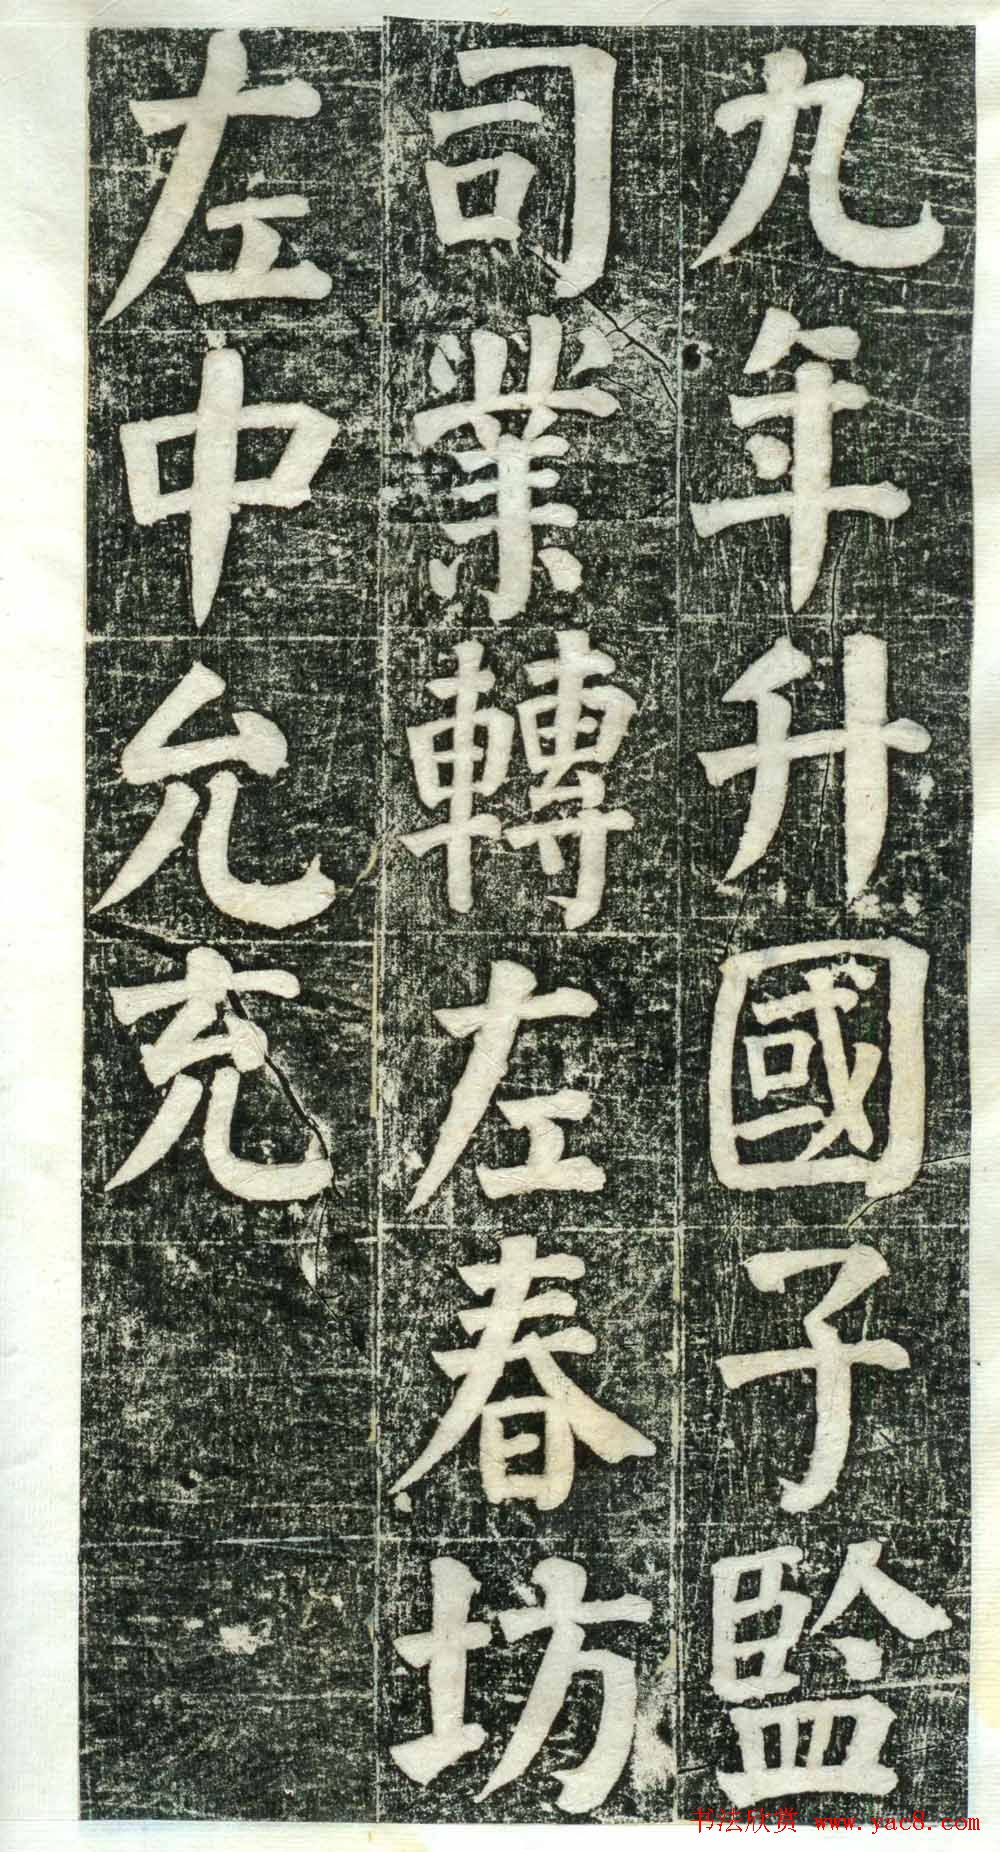 九年升國子監
司業轉左春坊
左中允充
书法欣赏 www.yac8.com